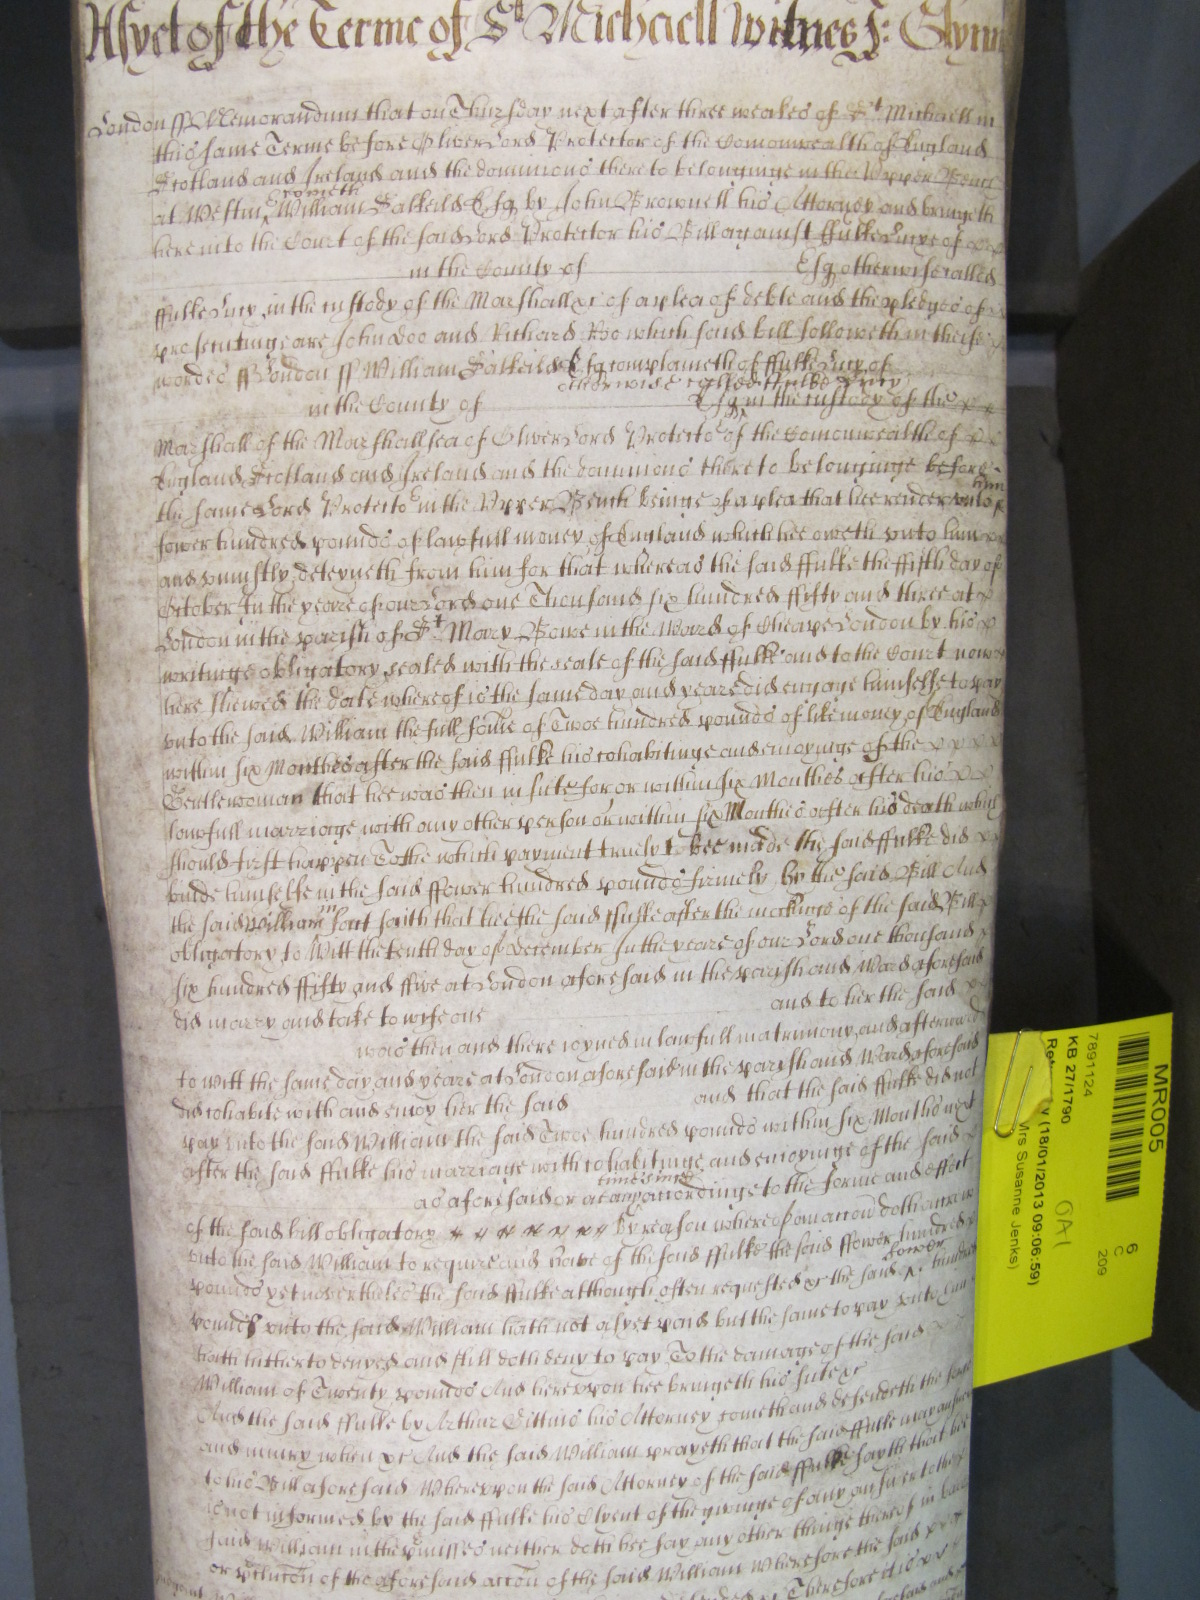 As yet of the Terme of St Michaell Witnes J: Glynn
London ss Memorandum that on Thursday next after three weekes of St Michaell in
this same Terme before Oliver Lord Protector of the Comonwealth of England
Scotland and Ireland and the dominions thereto belonginge in the Upper Bench
cometh
at Westm William Salkeild Esq by John Brownell his Attorney and bringeth
here into the Court of the said Lord Protector his Bill against ffulke Lucy of
in the County of Esq otherwise called
ffulke Lucy in the custody of the Marshall &c of a plea of debte and the pledges of
prosecutinge are John Doo and Richard Roo which said bill followeth in theise
wordes ss London ss William Salkeild Esq complaineth of ffulke Lucy of
otherwise called ffulke Lucy
in the County of Esq in the custody of the
Marshall of the Marshallsea of Oliver Lord Protector of the Comonwealth of
England Scotland and Ireland and the dominions thereto belonginge before
him
the same Lord Protector in the Upper Bench beinge of a plea that hee render unto
fower hundred pounds of lawfull money of England which hee oweth unto him
and uniustly deteyneth from him for that whereas the said ffulke the fifth day of
October In the yeare of our Lord one Thousand six hundred ffifty and three at
London in the parish of St Mary Bowe in the Ward of Cheape London by his
writinge obligatory sealed with the seale of the said ffulke and to the Court now
here shewed the date whereof is the same day and yeare did engage himselfe to pay
unto the said William the full some of Twoe hundred pounds of like money of England
within six Monthes after the said ffulke his cohabitinge and enioyinge of the
Gentlewoman that hee was then in sute for or within six Monthes after his
lawfull marriage with any other person or within six Monthes after his death which
should first happen To the which payment truely to bee made the said ffulke did
binde himselfe in the said ffower hundred pounds firmely by the said Bill And
the said William in fact saith that hee the said ffulke after the makinge of the said Bill
obligatory to Witt the tenth day of December In the yeare of our Lord one thousand
six hundred ffifty and ffive at London aforesaid in the parish and Ward aforesaid
did marry and take to wife one and to her the said
was then and there ioyned in lawfull matrimony and afterward
to witt the same day and yeare at London aforesaid in the parish and Ward aforesaid
did cohabite with and enioy her the said and that the said ffulke did not
pay unto the said William the said Twoe hundred pounds within six Months next
after the said ffulke his marriage with cohabitinge and enioyinge of the said
time since
as aforesaid or at any accordinge to the forme and effect
of the said bill obligatory By reason whereof an accion doth accrew
unto the said William to require and have of the said ffulke the said ffower hundred
fower
pounds yet neverthelesse the said ffulke although often requested &c the said hundred
pounds unto the said William hath not as yet paid but the same to pay unto him
hath hitherto denyed and still doth deny to pay To the damage of the said
William of Twenty pounds And hereupon hee bringeth his sute &c
And the said ffulke by Arthur Gittins his Attorney cometh and defendeth the force
and iniury when &c And the said William prayeth that the said ffulke may answer
to his Bill aforesaid Whereupon the said Attorney of the said ffulke sayth that hee
is not informed by the said ffulke his Clyent of the givinge of any answer to the
said William in the premisses neither doth hee say any other thinge thereof in barr
or preclucon of the aforesaid accon of the said William Wherefore the said
Therefore it is
MR005
7891124
KB 27/1790
(18/01/2013 09:06:59)
Mrs Susanne Jenks)
6
C
209